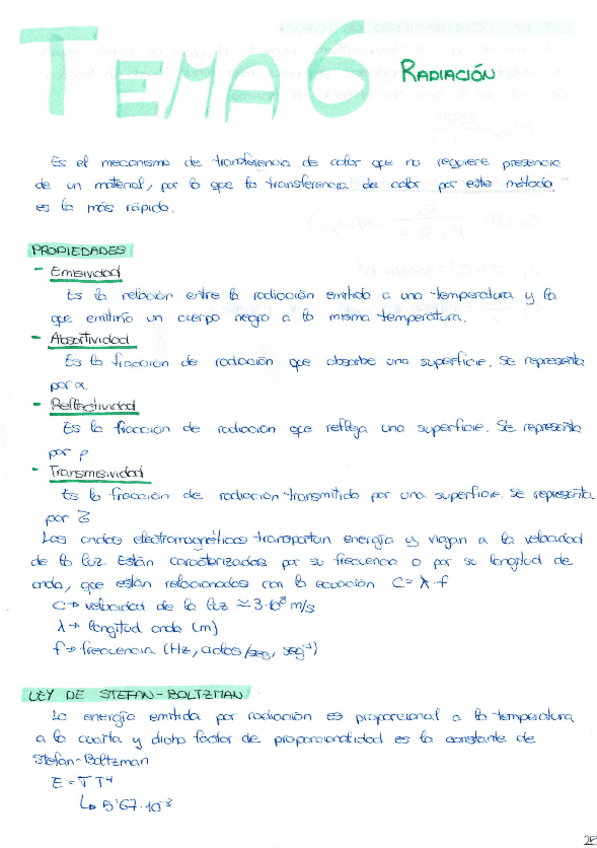 TEMA 6 RADIACIÓN
Es el mecanismo de transferencia de calor que no requiere presencia
de un material, por lo que la transferencia de calor por este método
es la más rápido.
PROPIEDADES
- Emisividad
Es la relación entre la radiación emitida a una temperatura y la
que emitiría un cuerpo negro a la misma temperatura.
- Absortividad
Es la fracción de radiación que absorbe una superficie. Se representa
por α.
- Reflectividad
Es la fracción de radiación que refleja una superficie. Se representa
por ρ
- Transmisividad
Es la fracción de radiación transmitida por una superficie. Se representa
por Z
Las ondas electromagnéticas transportan energía y viajan a la velocidad
de la luz. Están caracterizadas por su frecuencia o por su longitud de
onda, que están relacionados con la ecuación C = λ · f
C → velocidad de la luz ≃ 3·10⁸ m/s
λ → longitud onda (m)
f → frecuencia (Hz, ciclos/seg, seg⁻¹)
LEY DE STEFAN-BOLTZMAN
La energía emitida por radiación es proporcional a la temperatura
a la cuarta y dicho factor de proporcionalidad es la constante de
Stefan-Boltzman
E = T T⁴
↳ 5'67·10⁻⁸